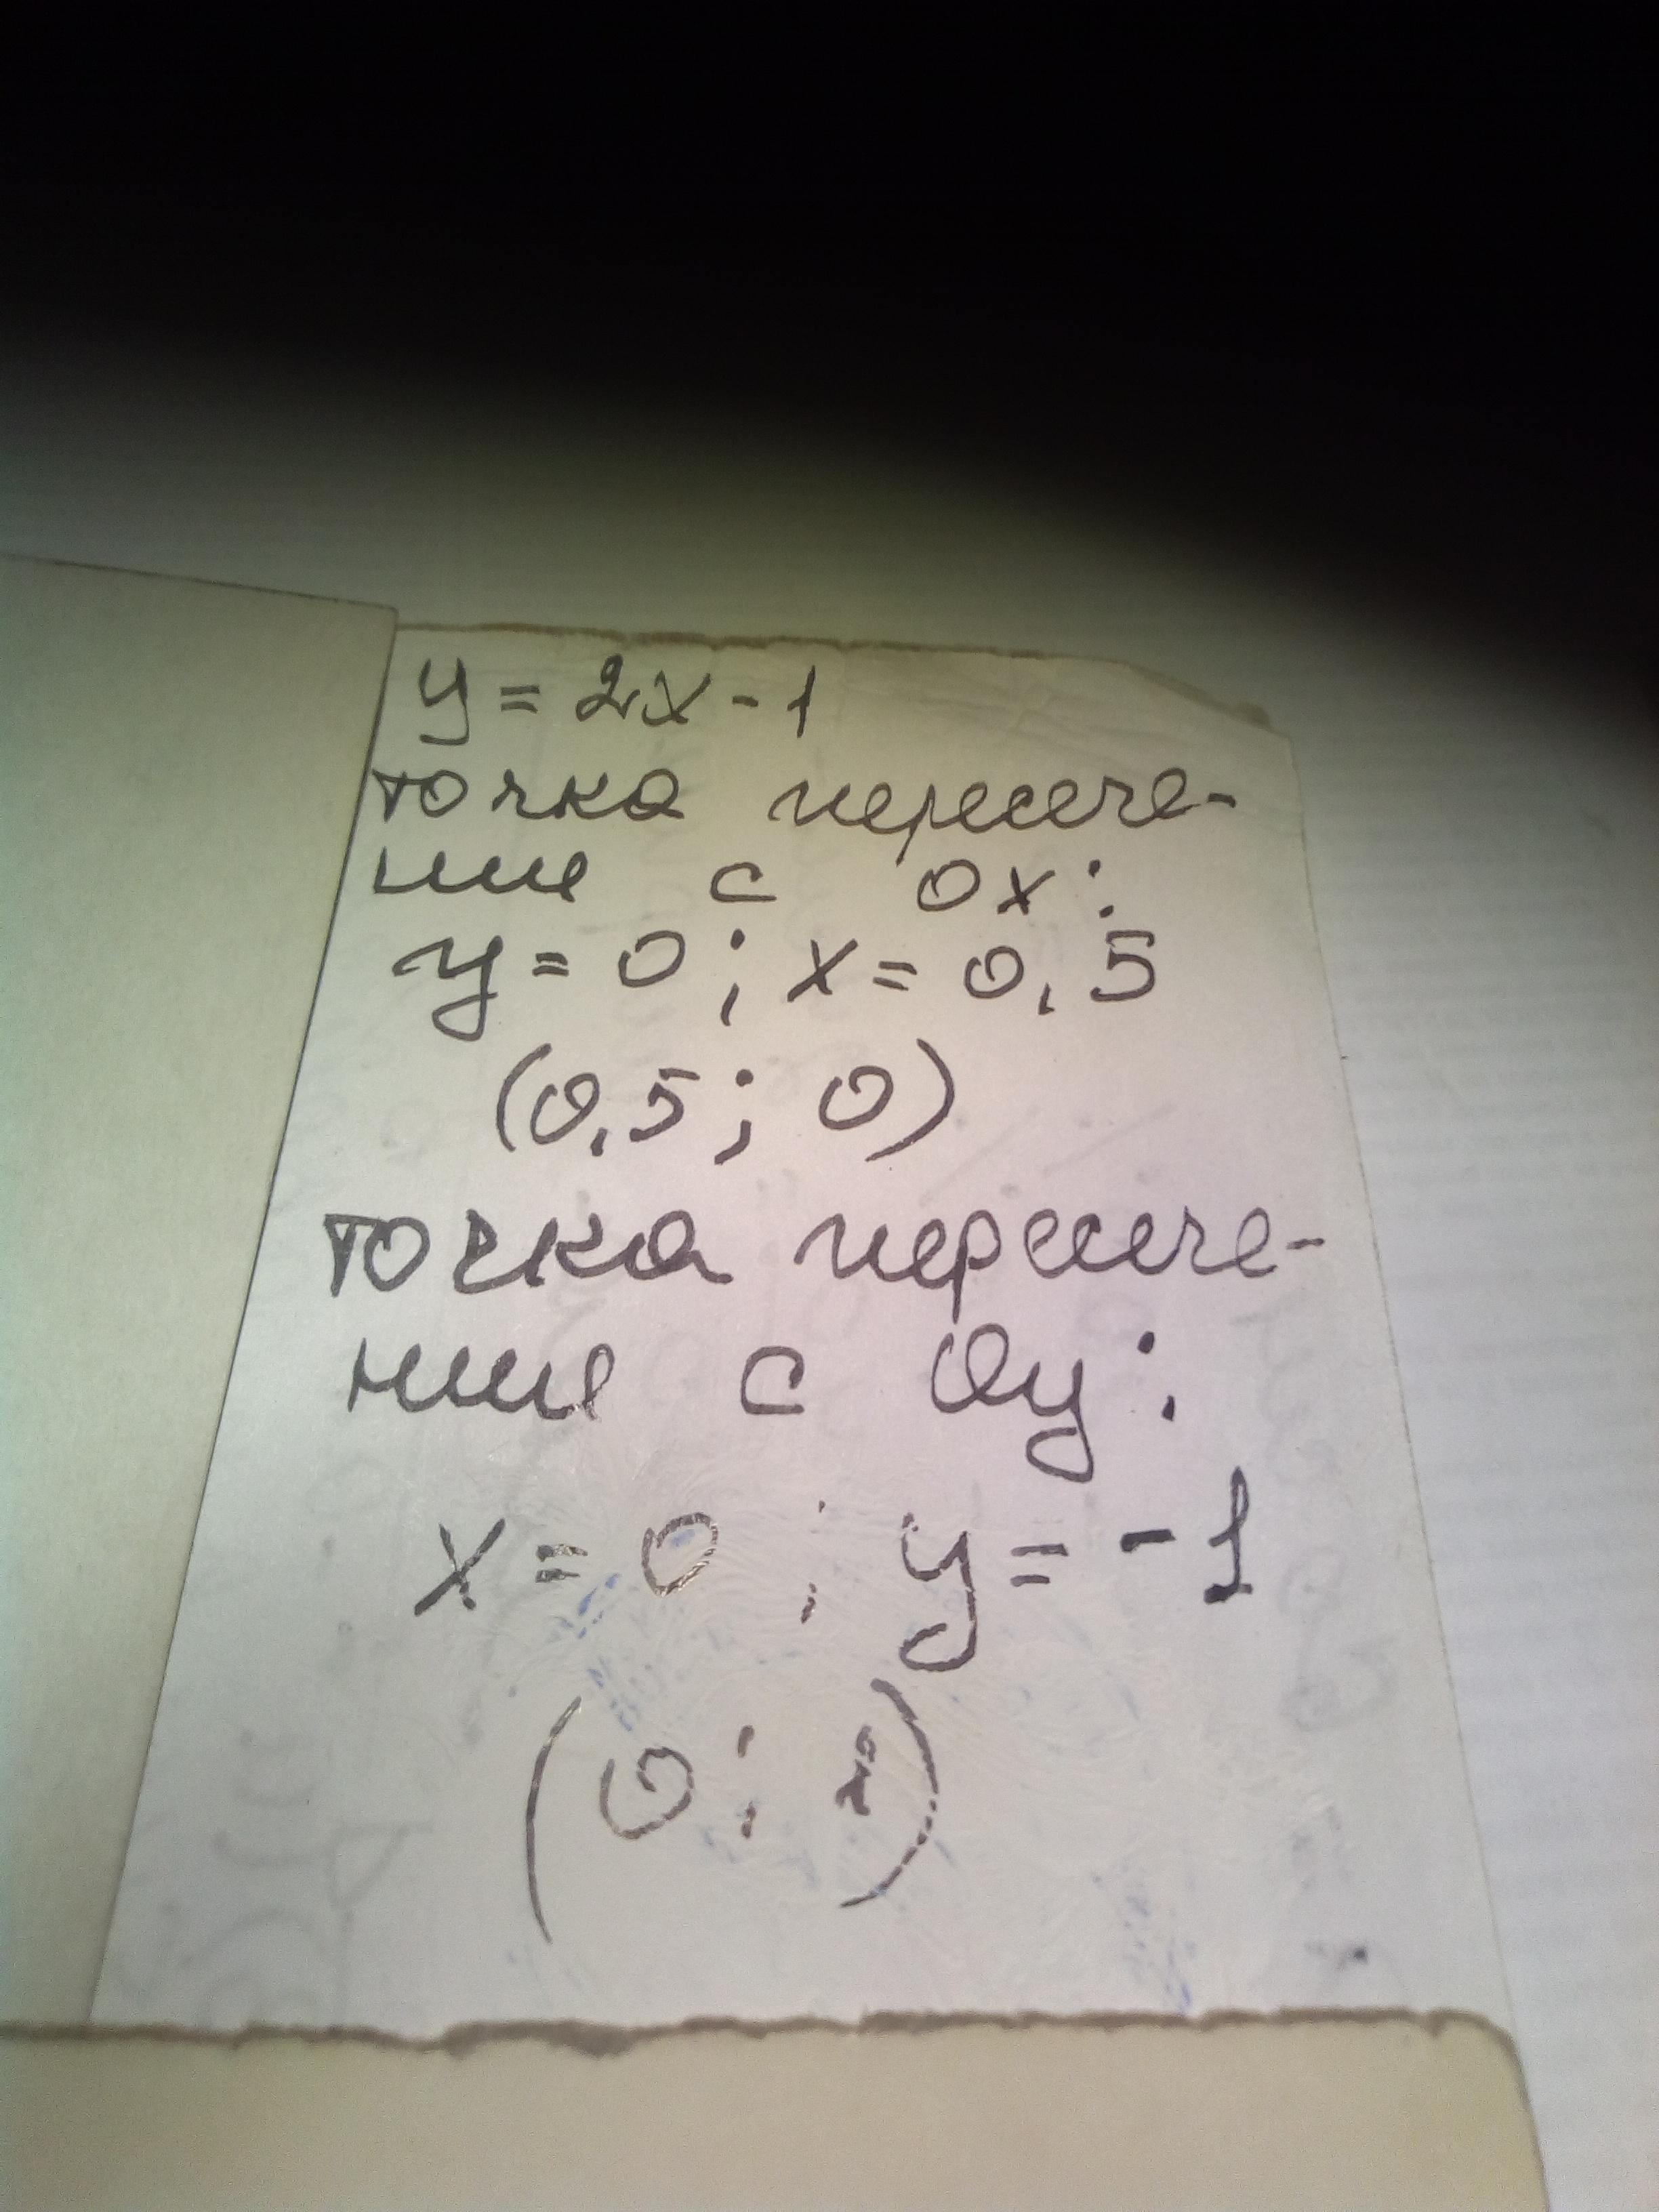 y = 2x - 1
точка пересече-
ние с Ox:
y = 0; x = 0,5
(0,5; 0)
точка пересече-
ние с Oy:
x = 0; y = -1
(0;